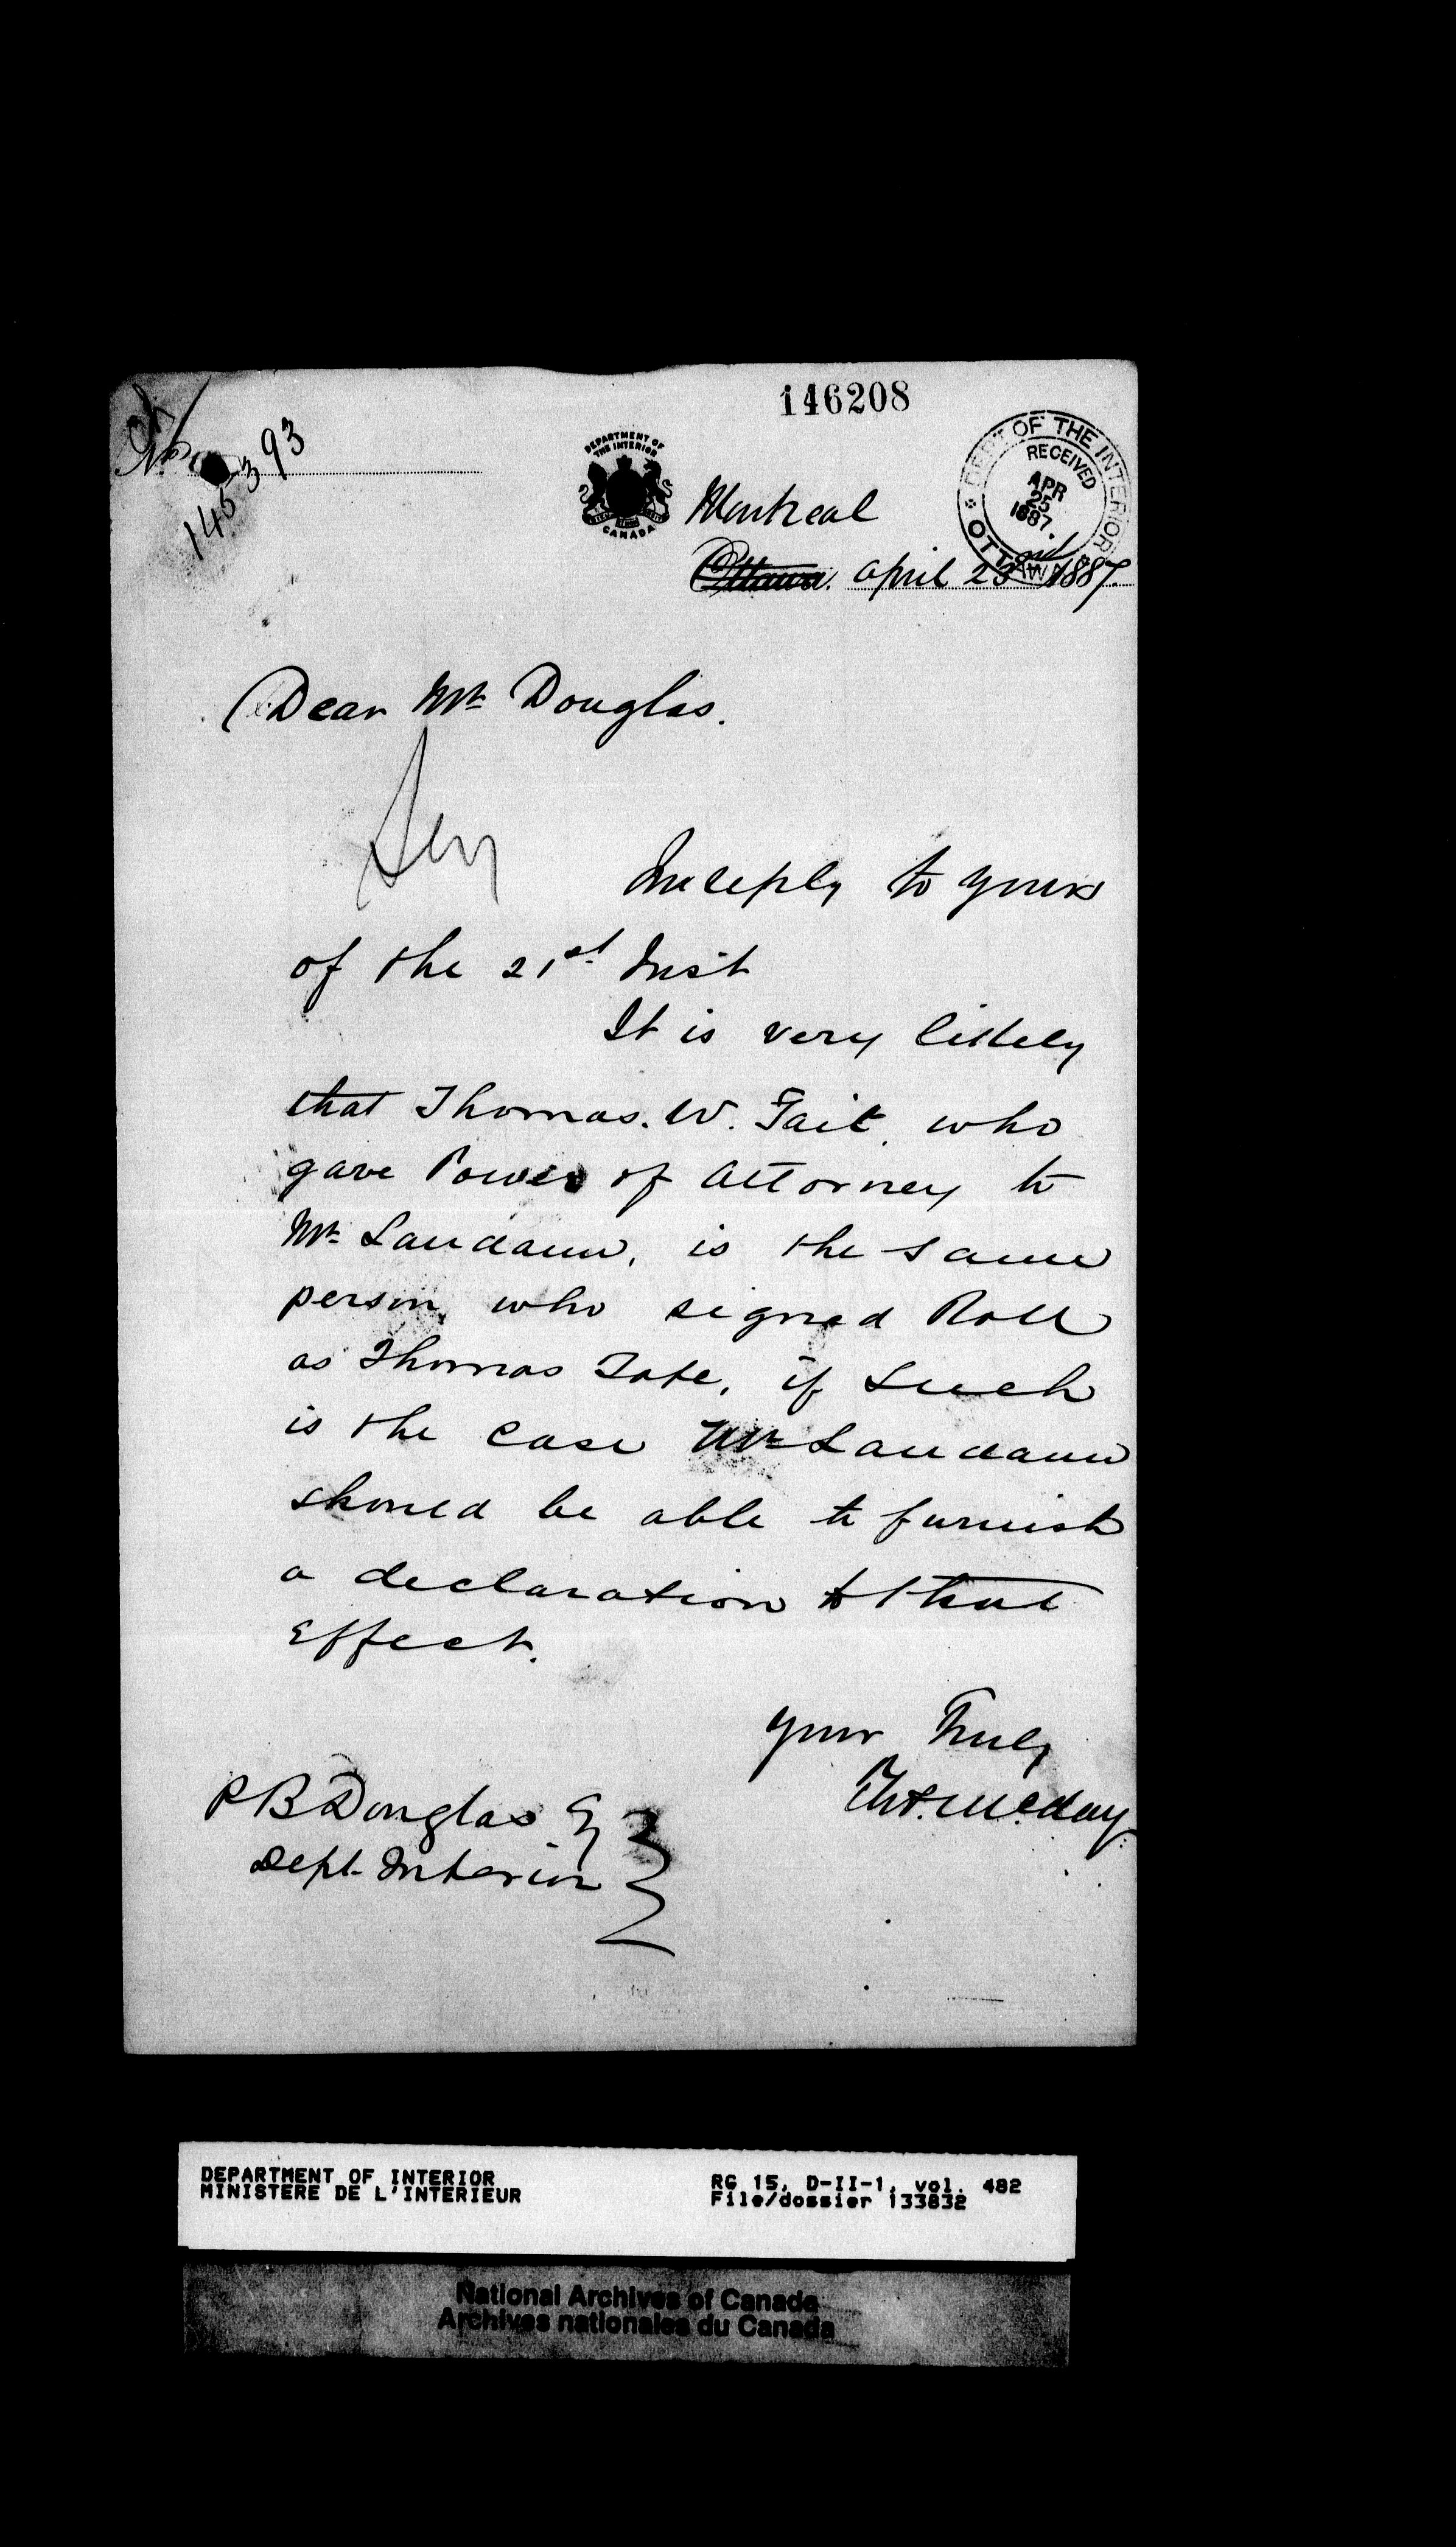 146208
No
145393
DEPARTMENT OF
THE INTERIOR
CANADA
DEPT OF THE INTERIOR
RECEIVED
APR
25
1887.
OTTAWA
Montreal
Ottawa. april 23rd 1887.
Dear Mr Douglas.
In reply to yours
of the 21st Inst
It is very likely
that Thomas. W. Tait. who
gave Power of Attorney to
Mr Landann, is the same
person, who signed Roll
as Thomas Tate, if Such
is the case Mr Landann
should be able to furnish
a declaration to that
Effect.
Your Truly
P B Douglas Esq
Dept. Interior
DEPARTMENT OF INTERIOR
MINISTERE DE L'INTERIEUR
RG 15, D-II-1, vol. 482
File/dossier 133832
National Archives of Canada
Archives nationales du Canada